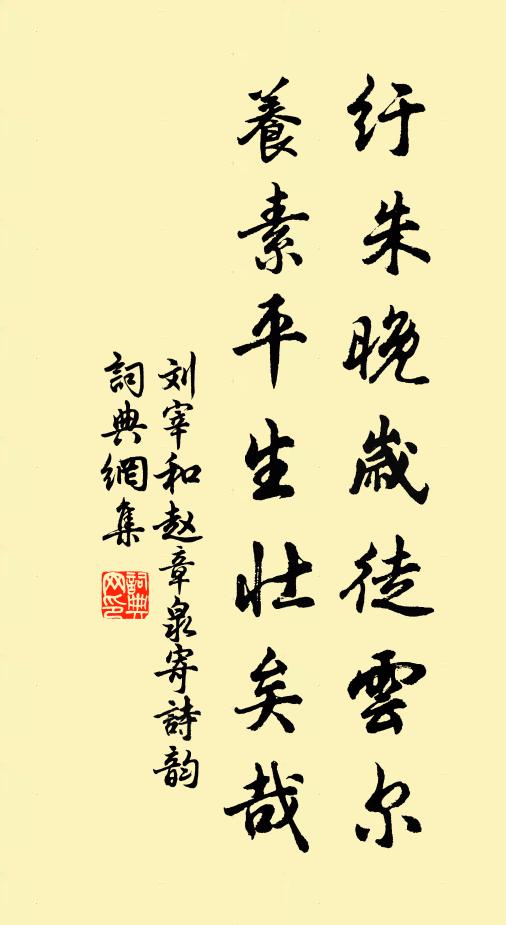 纡朱晚歲徒雲尔
養素平生壯矣哉
刘宰和赵章泉寄詩韵
詞典網集
詞典网印